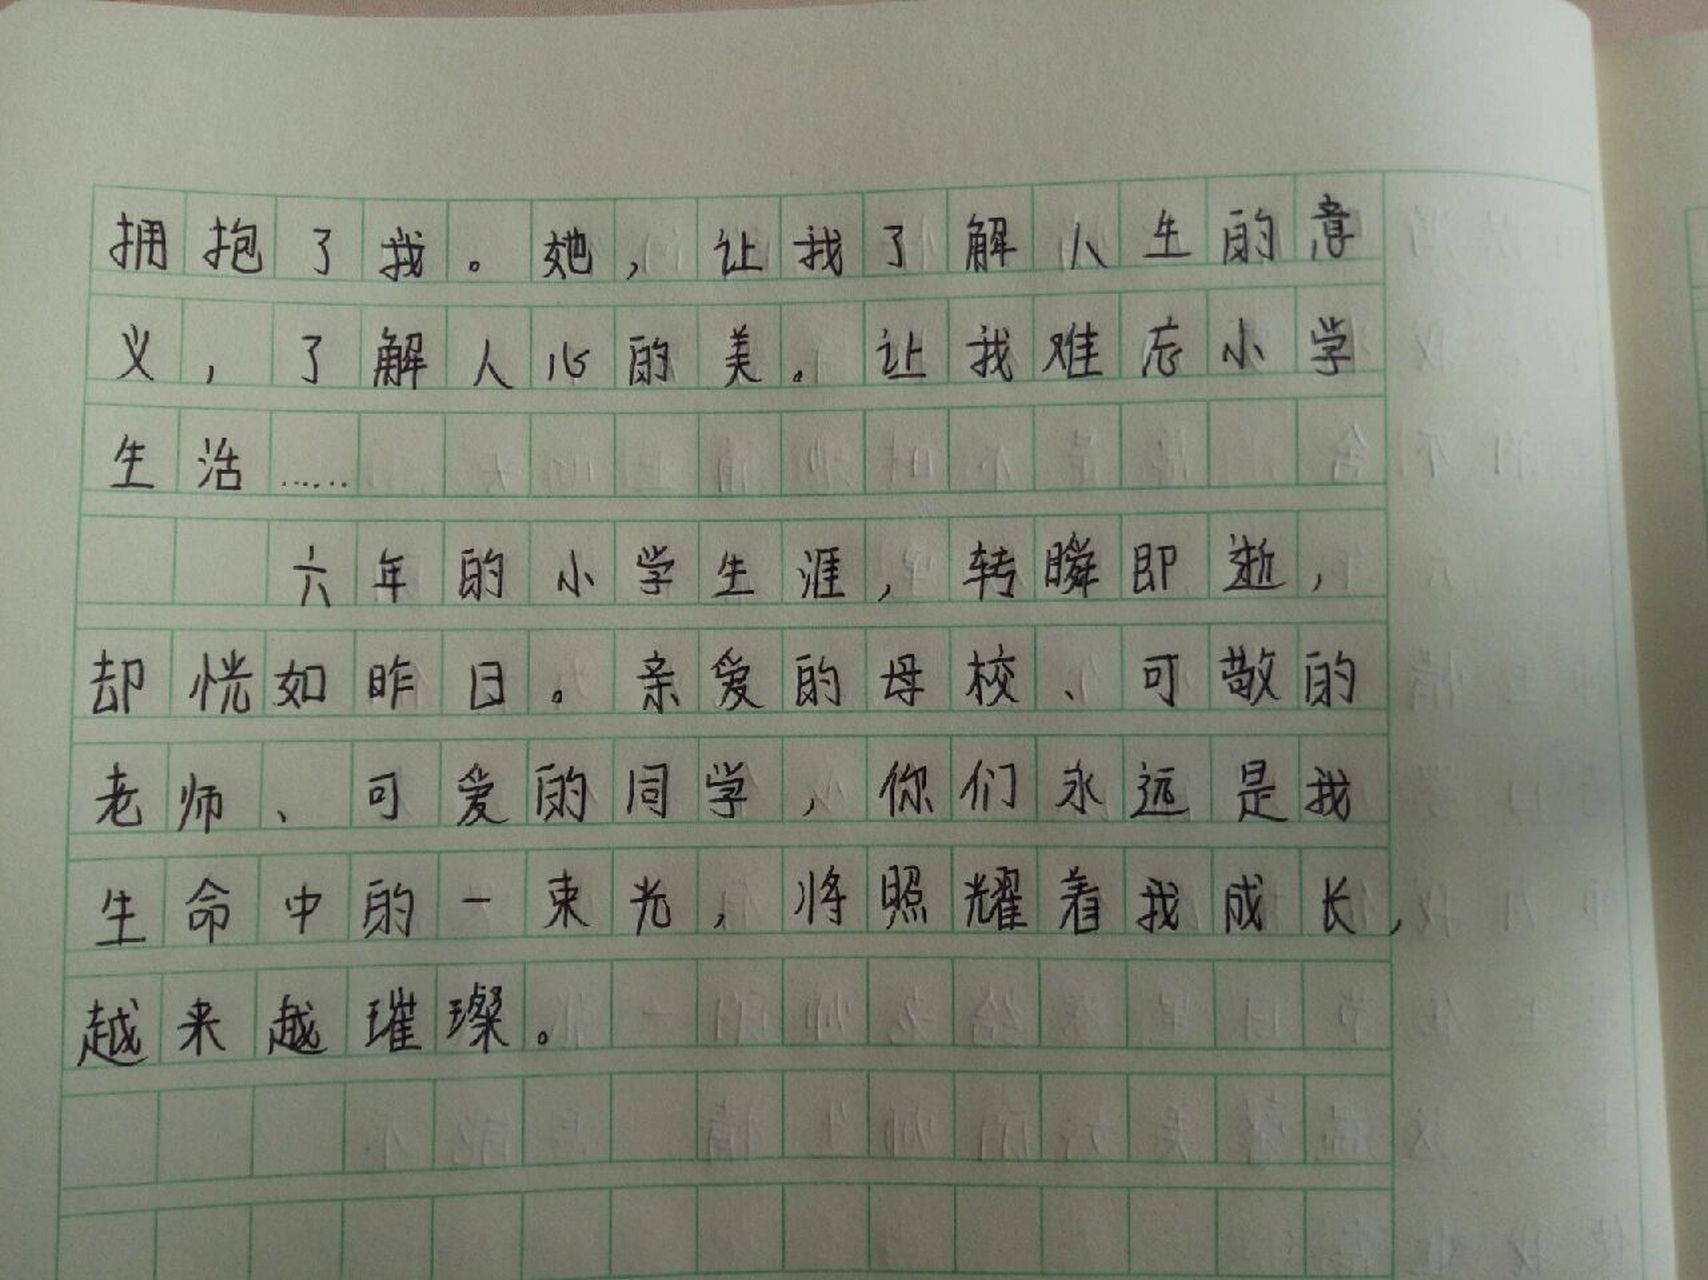 拥抱了我。她，让我了解人生的意
义，了解人心的美。让我难忘小学
生活……
六年的小学生涯，转瞬即逝，
却恍如昨日。亲爱的母校、可敬的
老师、可爱的同学，你们永远是我
生命中的一束光，将照耀着我成长，
越来越璀璨。